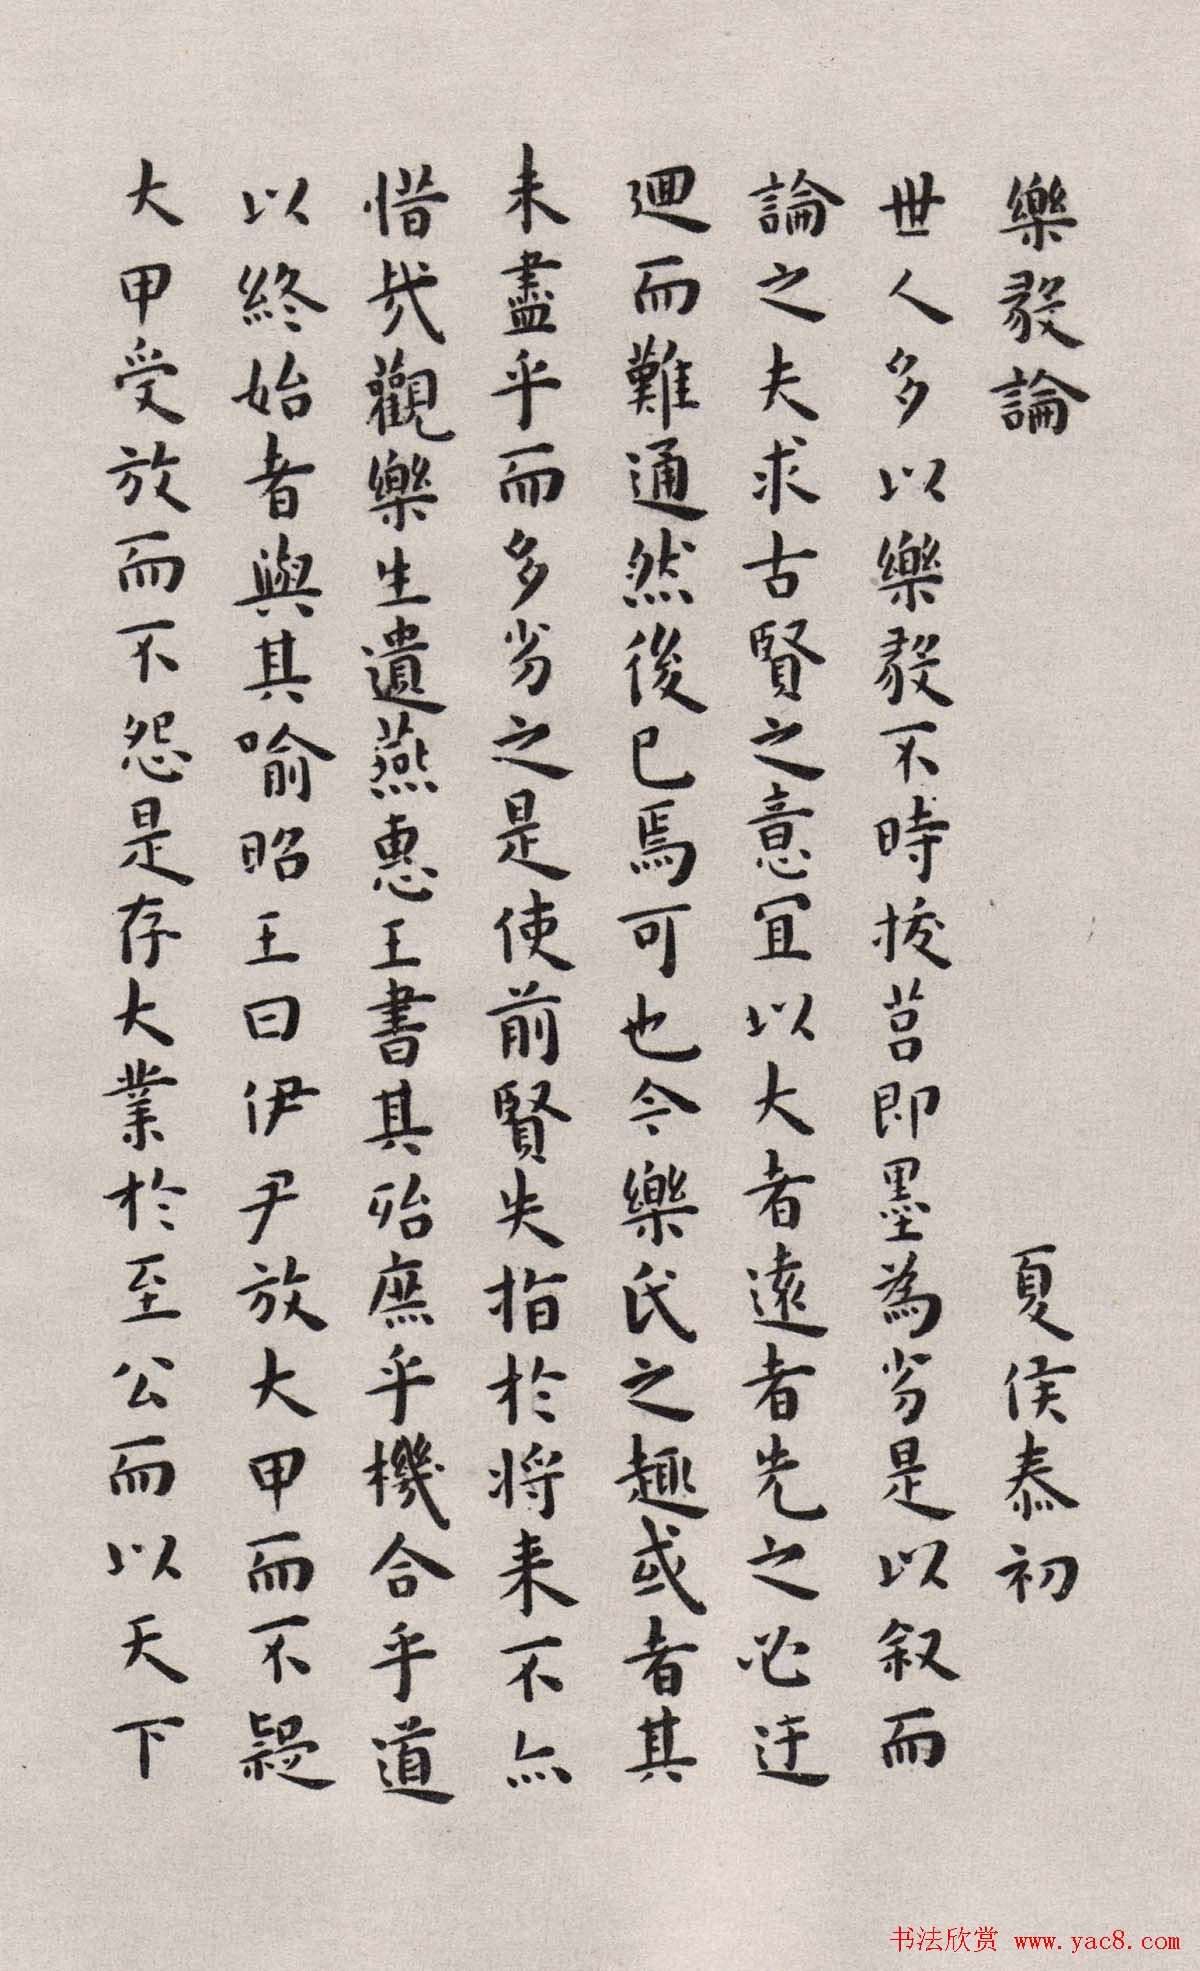 樂毅論　夏侯泰初
世人多以樂毅不時拔莒即墨為劣是以叙而
論之夫求古賢之意宜以大者遠者先之必迂
迴而難通然後已焉可也今樂氏之趣或者其
未盡乎而多劣之是使前賢失指於将来不亦
惜哉觀樂生遺燕惠王書其殆庶乎機合乎道
以終始者與其喻昭王曰伊尹放大甲而不疑
大甲受放而不怨是存大業於至公而以天下
书法欣赏 www.yac8.com